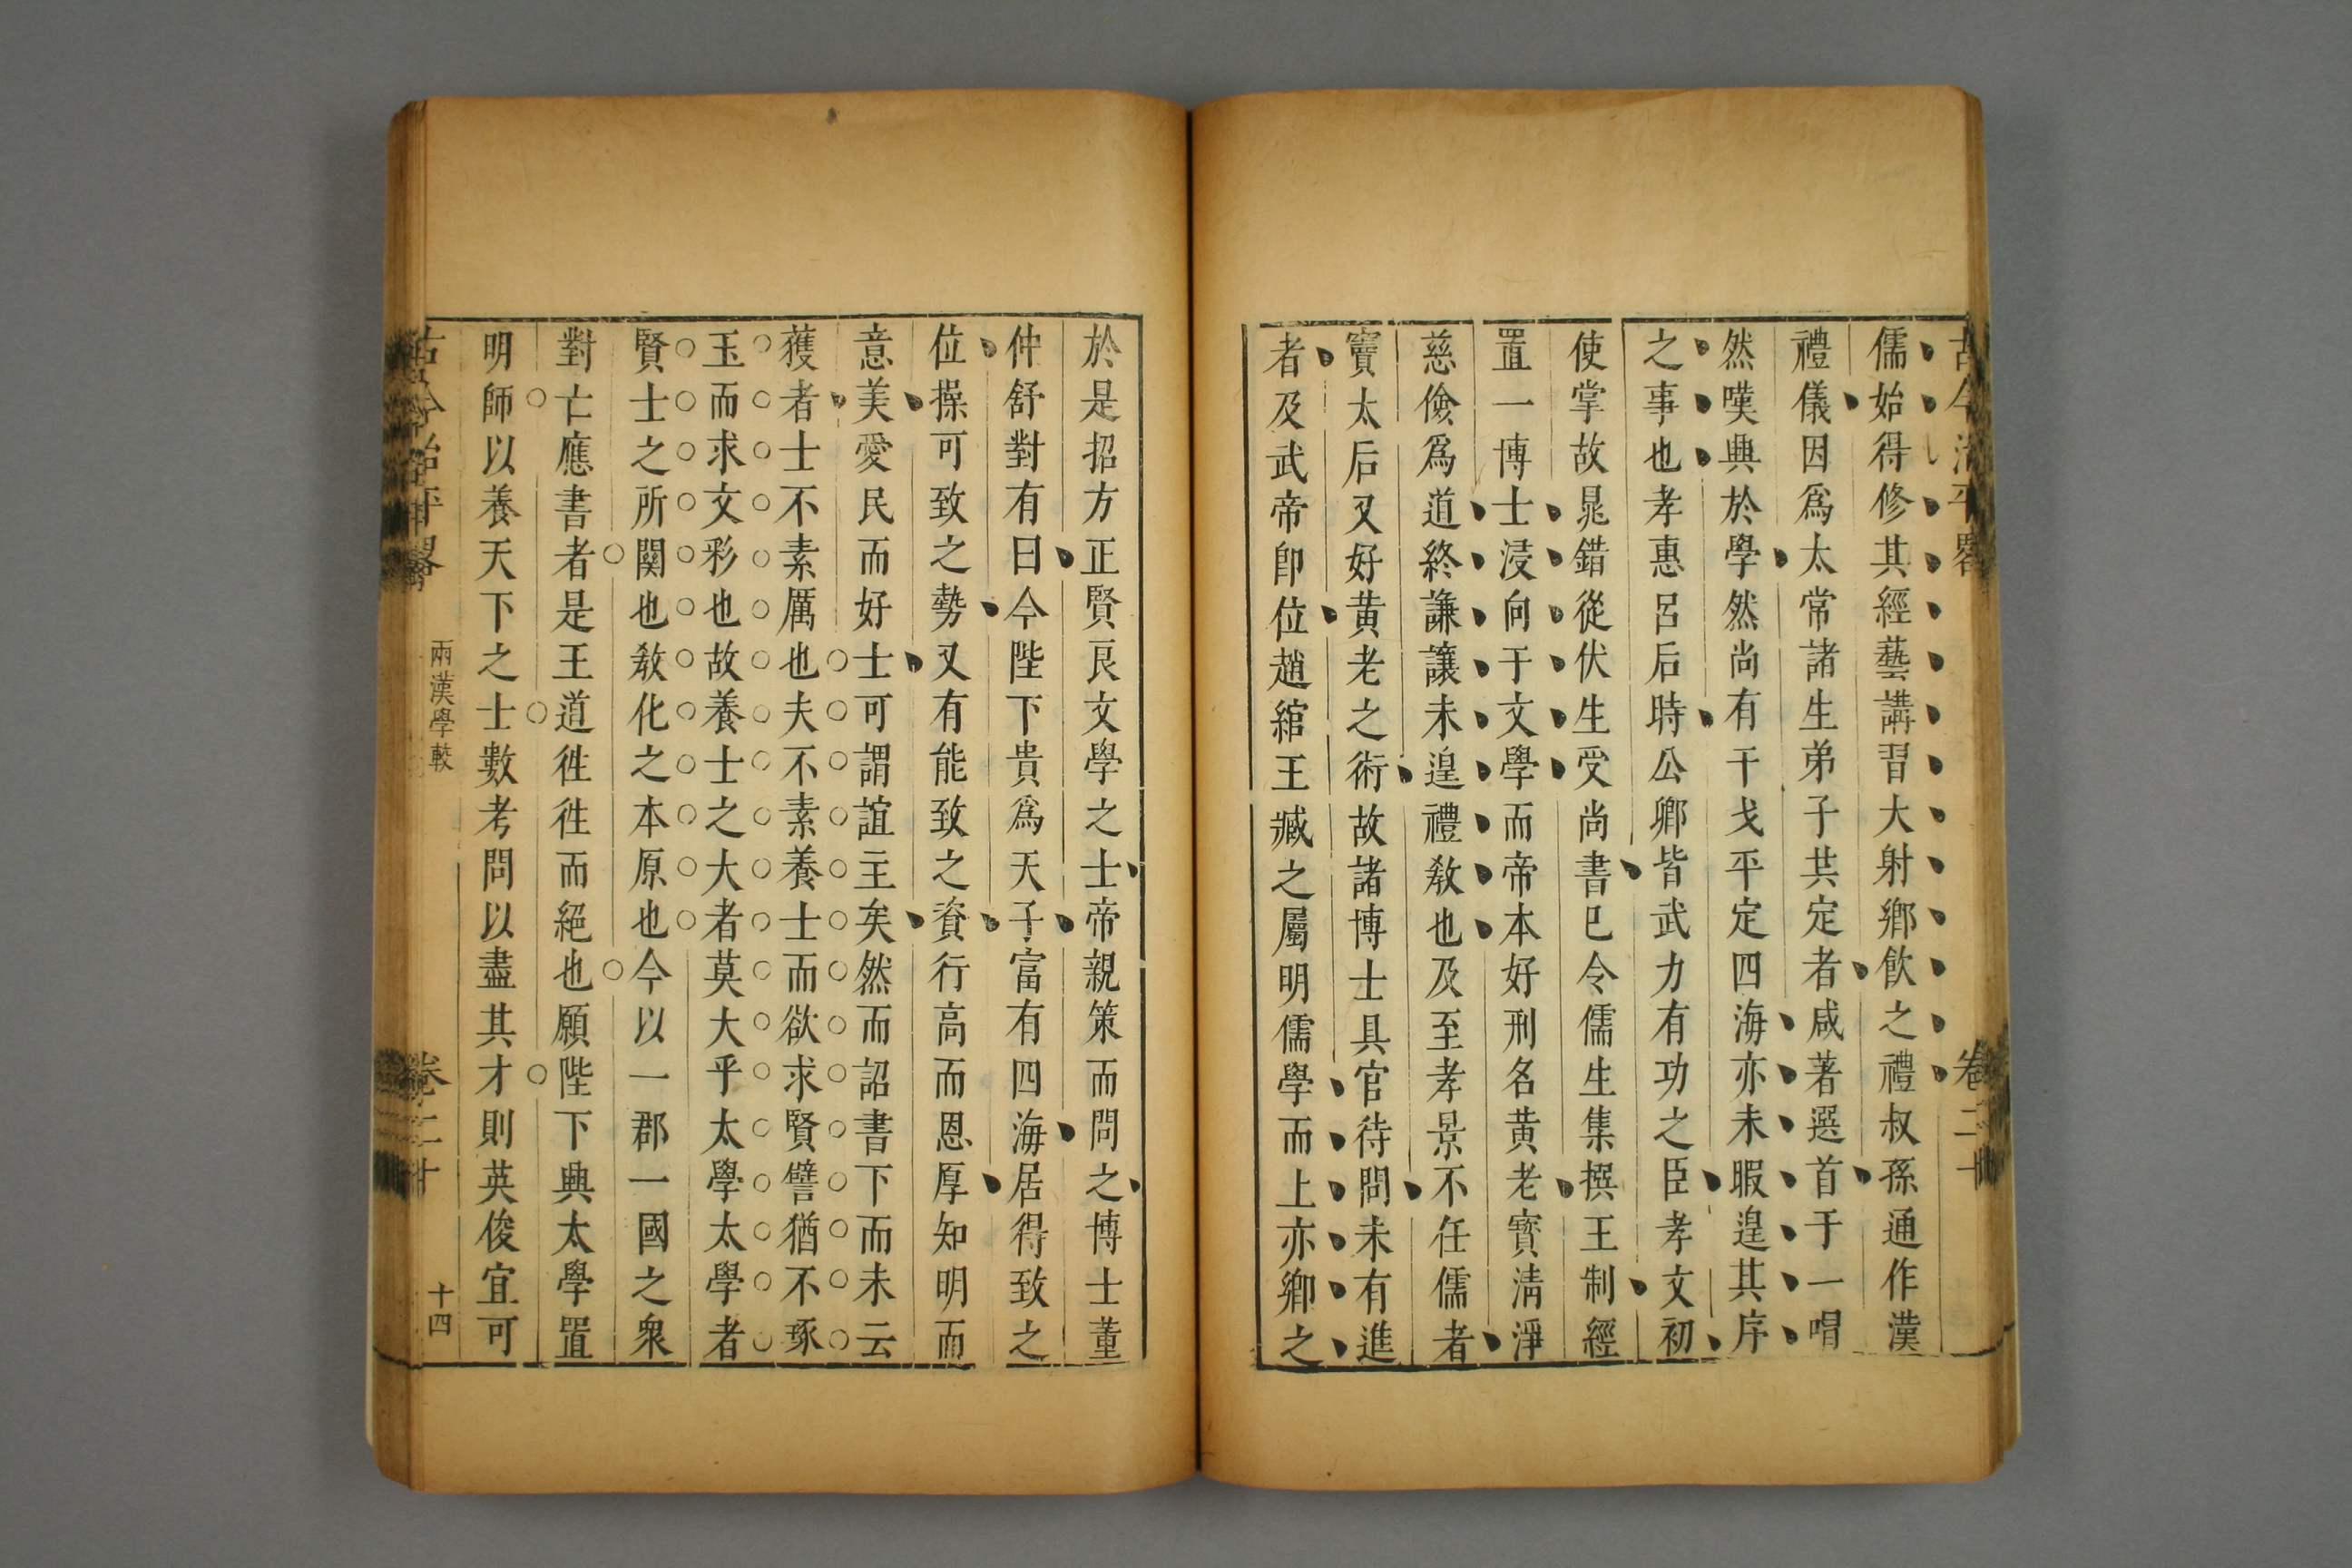 古今治平畧
卷二十
儒始得修其經藝講習大射鄉飲之禮叔孫通作漢
禮儀因爲太常諸生弟子共定者咸著選首于一喟
然嘆興於學然尚有干戈平定四海亦未暇遑其庠
之事也孝惠呂后時公卿皆武力有功之臣孝文初
使掌故晁錯從伏生受尚書巳令儒生集撰王制經
置一博士浸向于文學而帝本好刑名黄老寳淸淨
慈儉爲道終謙讓未遑禮敎也及至孝景不任儒者
竇太后又好黄老之術故諸博士具官待問未有進
者及武帝卽位趙綰王臧之屬明儒學而上亦鄉之
於是招方正賢良文學之士帝親策而問之博士董
仲舒對有曰今陛下貴爲天子富有四海居得致之
位操可致之勢又有能致之資行高而恩厚知明而
意美愛民而好士可謂誼主矣然而詔書下而未云
獲者士不素厲也夫不素養士而欲求賢譬猶不琢
玉而求文彩也故養士之大者莫大乎太學太學者
賢士之所關也敎化之本原也今以一郡一國之衆
對亡應書者是王道徃徃而絕也願陛下興太學置
明師以養天下之士數考問以盡其才則英俊宜可
古今治平畧
兩漢學較
卷二十
十四